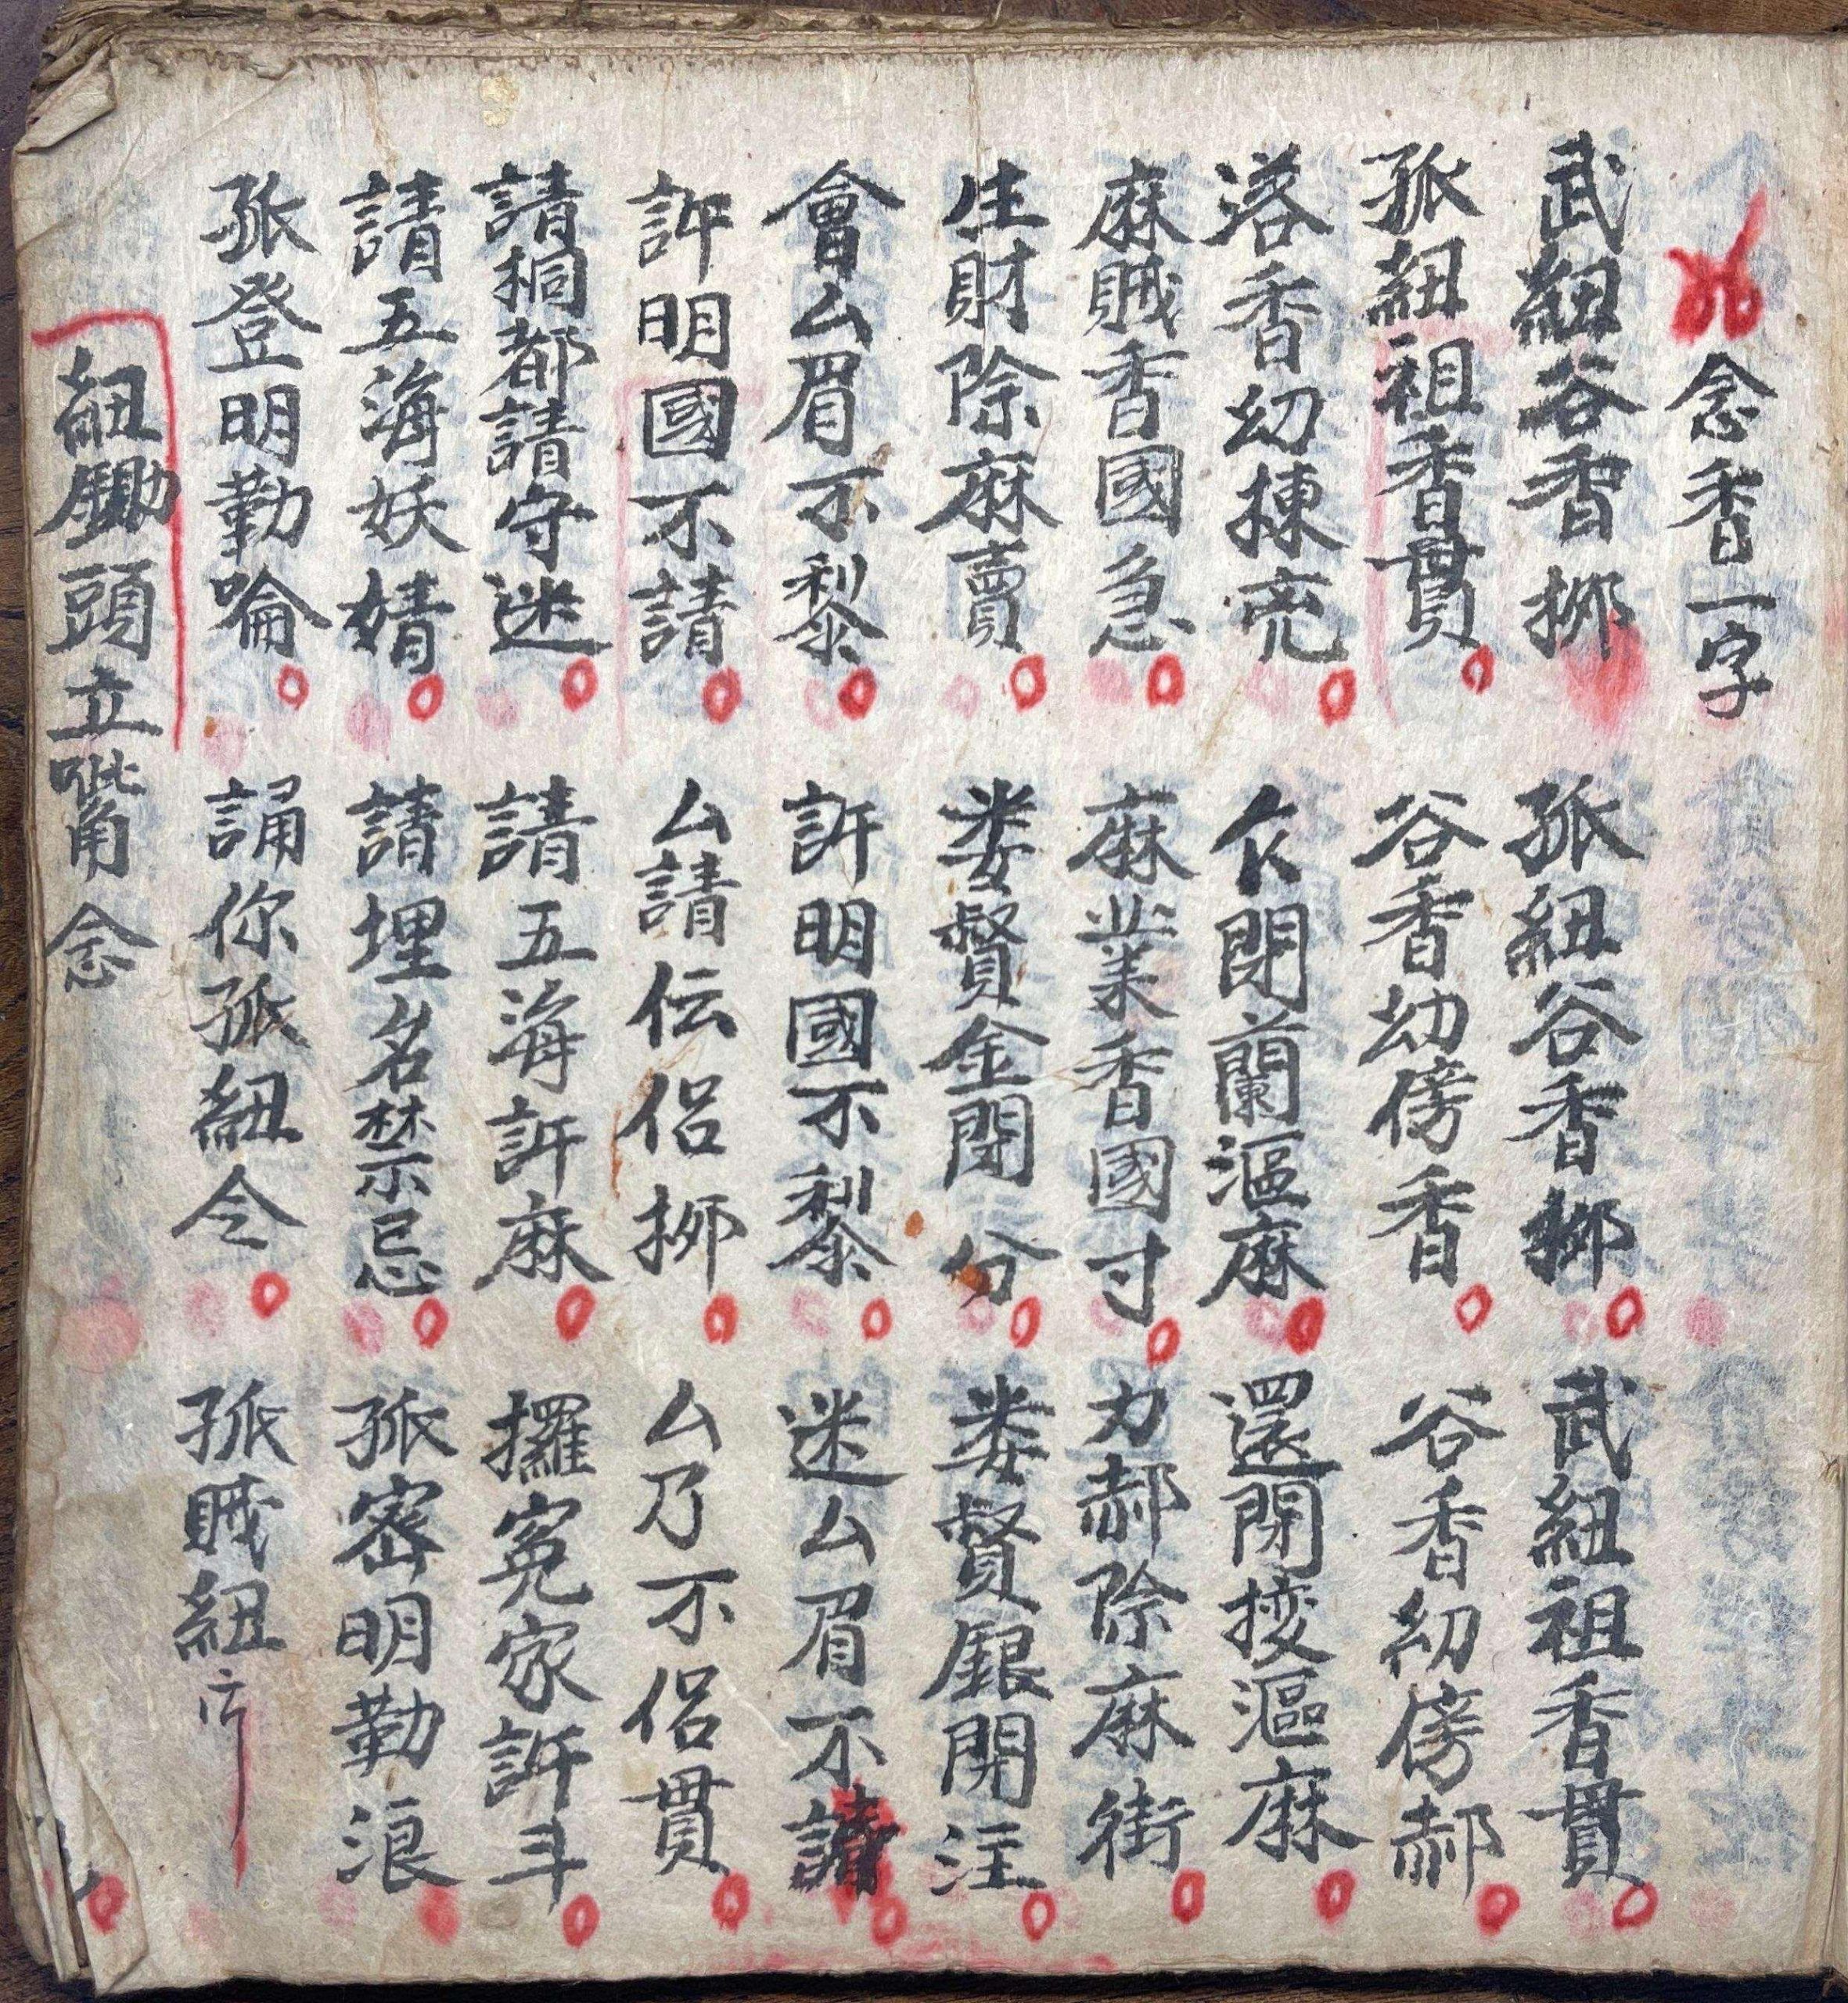 念香一字
武紐谷香挷 孤紐谷香挷 武紐祖香貫
孤紐祖香貫 谷香幼傍香 谷香幼傍郝
落香幼揀亮 閉蘭漚麻 還閉漚麻
麻賊香國急 麻業香國寸 力郝除麻街
生財除麻賣 娄督金開分 娄督銀開注
會厶眉不黎 許明國不黎 迷厶眉不請
許明國不請 厶請伝侣挷 厶乃不侣貫
請桐都請守迷 請五海許麻 攞冤家許斗
請五海妖婧 請埋名禁忌 孤密明勒浪
孤登明勒喻 誦你孤紐令 孤賊紐
紐鋤頭立觜念